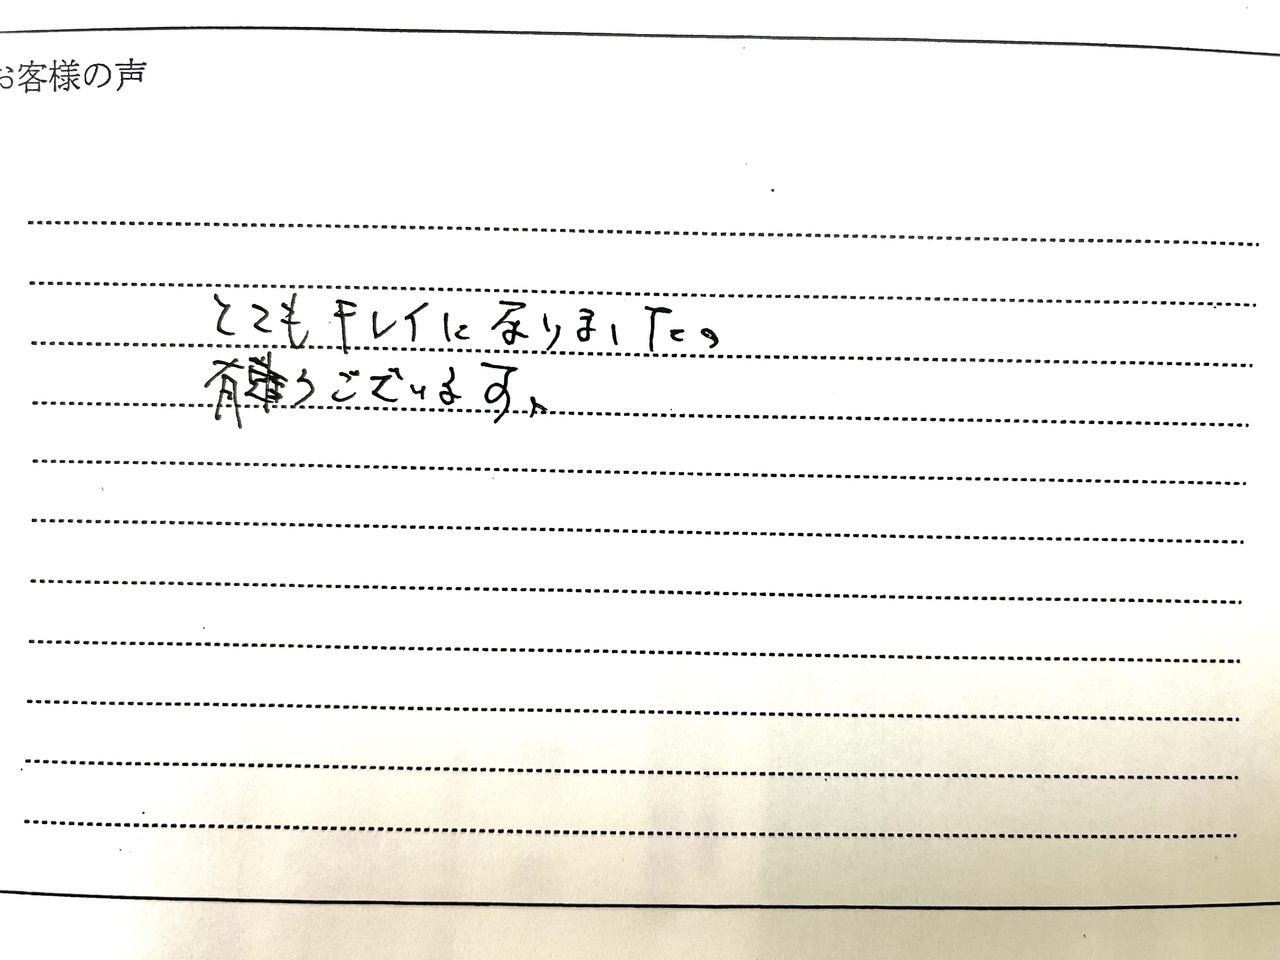 お客様の声
とてもキレイになりました。
有難うございます。